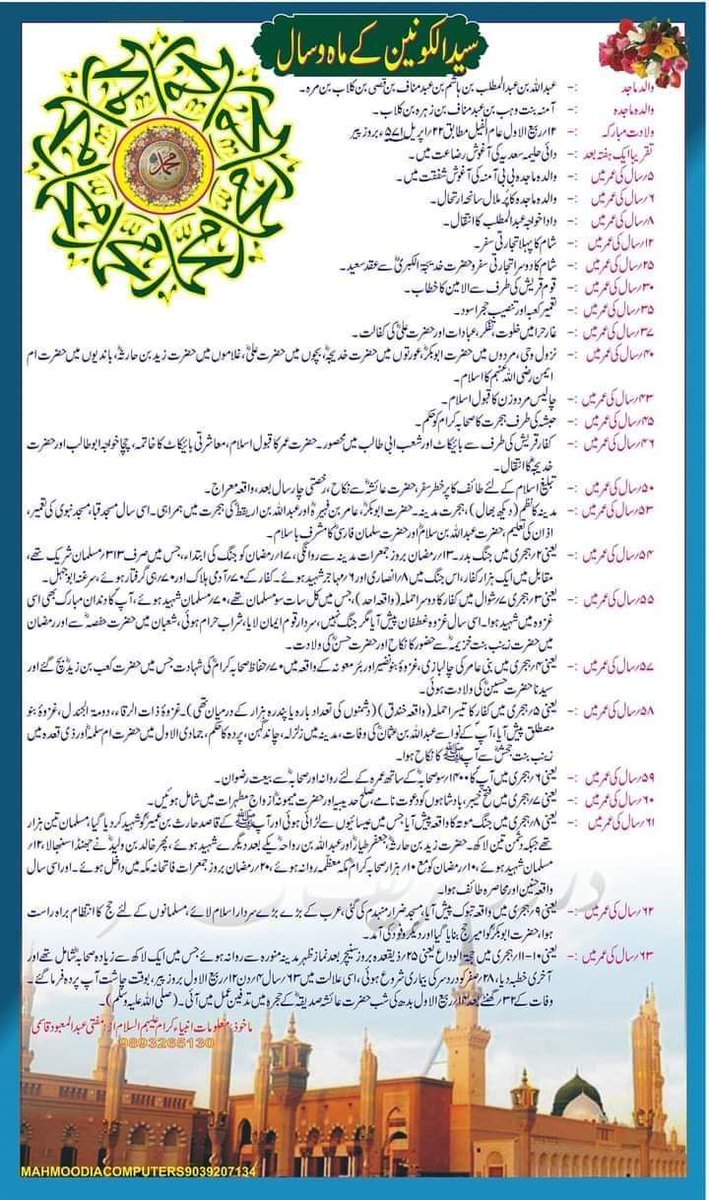 سید الکونین کے ماہ و سال
والد ماجد :- عبداللہ بن عبدالمطلب بن ہاشم بن عبد مناف بن قصی بن کلاب بن مرہ۔
والدہ ماجدہ :- آمنہ بنت وہب بن عبد مناف بن زہرہ بن کلاب۔
ولادت مبارکہ :- ۱۲/ربیع الاول عام الفیل مطابق ۲۲/اپریل ۵۷۱ء بروز پیر
تقریبا ایک ہفتہ بعد :- دائی حلیمہ سعدیہ کی آغوش رضاعت میں۔
۵/سال کی عمر میں :- والدہ ماجدہ بی بی آمنہ کی آغوش شفقت میں۔
۶/سال کی عمر میں :- والدہ ماجدہ کا پُر ملال سانحہ ارتحال۔
۸/سال کی عمر میں :- دادا خواجہ عبدالمطلب کا انتقال۔
۱۲/سال کی عمر میں :- شام کا پہلا تجارتی سفر۔
۲۵/سال کی عمر میں :- شام کا دوسرا تجارتی سفر و حضرت خدیجۃ الکبریٰؓ سے عقد سعید۔
۳۰/سال کی عمر میں :- قوم قریش کی طرف سے الامین کا خطاب۔
۳۵/سال کی عمر میں :- تعمیر کعبہ اور تنصیب حجر اسود۔
۳۷/سال کی عمر میں :- غار حرا میں خلوت، تفکر، عبادات اور حضرت علیؓ کی کفالت۔
۴۰/سال کی عمر میں :- نزول وحی، مردوں میں حضرت ابوبکرؓ، عورتوں میں حضرت خدیجہؓ، بچوں میں حضرت علیؓ، غلاموں میں حضرت زید بن حارثہؓ، باندیوں میں حضرت ام
ایمن رضی اللہ عنہم کا اسلام۔
۴۳/سال کی عمر میں :- چالیس مرد و زن کا قبول اسلام۔
۴۵/سال کی عمر میں :- حبشہ کی طرف ہجرت کا صحابہ کرام کو حکم۔
۴۶/سال کی عمر میں :- کفار قریش کی طرف سے بائیکاٹ اور شعب ابی طالب میں محصور۔ حضرت عمر کا قبول اسلام، معاشرتی بائیکاٹ کا خاتمہ، چچا خواجہ ابوطالب اور حضرت
خدیجہؓ کا انتقال۔
۵۰/سال کی عمر میں :- تبلیغ اسلام کے لئے طائف کا پرخطر سفر، حضرت عائشہؓ سے نکاح، رخصتی چار سال بعد، واقعہ معراج۔
۵۳/سال کی عمر میں :- مدینہ کا نظم (دیکھ بھال)، ہجرت مدینہ۔ حضرت ابوبکرؓ، عامر بن فہیرہؓ اور عبداللہ بن اریقط کی ہجرت میں ہمراہی۔ اسی سال مسجد قبا، مسجد نبوی کی تعمیر،
اذان کی تعلیم، حضرت عبداللہ بن سلامؓ اور حضرت سلمان فارسیؓ کا مشرف با سلام۔
۵۴/سال کی عمر میں :- یعنی ۲/ہجری میں جنگ بدر۔ ۱۳/رمضان بروز جمعرات مدینہ سے روانگی، ۱۷/رمضان کو جنگ کی ابتداء، جس میں صرف ۳۱۳ مسلمان شریک تھے،
مقابل میں ایک ہزار کفار، اس جنگ میں ۸/انصاری اور ۶/مہاجر شہید ہوئے۔ کفار کے ۷۰/آدمی ہلاک اور ۷۰/ہی گرفتار ہوئے، سرغنہ ابوجہل۔
۵۵/سال کی عمر میں :- یعنی ۳/ہجری ۷/شوال میں کفار کا دوسرا حملہ (واقعہ احد)، جس میں کل سات سو مسلمان تھے، ۷۰/مسلمان شہید ہوئے، آپؐ کا دندان مبارک بھی اسی
غزوہ میں شہید ہوا۔ اسی سال غزوہ غطفان پیش آیا مگر جنگ نہیں، سردار قوم ایمان لایا، شراب حرام ہوئی، شعبان میں حضرت حفصہؓ سے اور رمضان
میں حضرت زینب بنت خزیمہؓ سے حضور کا نکاح اور حضرت حسنؓ کی ولادت۔
۵۷/سال کی عمر میں :- یعنی ۴/ہجری میں بنی عامر کی چالبازی، غزوۂ بنو نضیر اور بئر معونہ کے واقعہ میں ۷۰/حفاظ صحابہ کرامؓ کی شہادت جس میں حضرت کعب بن زیدؓ بچ گئے اور
سیدنا حضرت حسینؓ کی ولادت ہوئی۔
۵۸/سال کی عمر میں :- یعنی ۵/ہجری میں کفار کا تیسرا حملہ (واقعہ خندق) (دشمنوں کی تعداد بارہ یا پندرہ ہزار کے درمیان تھی)۔ غزوۂ ذات الرقاء، دومۃ الجندل، غزوۂ بنو
مصطلق پیش آیا، آپؐ کے نواسے عبداللہ بن عثمانؓ کی وفات، مدینہ میں زلزلہ، چاند گہن، پردہ کا حکم، جمادی الاول میں حضرت ام سلمہؓ اور ذی قعدہ میں
زینب بنت جحشؓ سے آپ ﷺ کا نکاح ہوا۔
۵۹/سال کی عمر میں :- یعنی ۶/ہجری میں آپؐ کا ۱۴۰۰/سو صحابہؓ کے ساتھ عمرہ کے لئے روانہ اور صحابہؓ سے بیعت رضوان۔
۶۰/سال کی عمر میں :- یعنی ۷/ہجری میں فتح خیبر، بادشاہوں کو دعوت نامے، صلح حدیبیہ اور حضرت میمونہؓ ازواج مطہرات میں شامل ہوئیں۔
۶۱/سال کی عمر میں :- یعنی ۸/ہجری میں جنگ موتہ کا واقعہ پیش آیا جس میں عیسائیوں سے لڑائی ہوئی اور آپ ﷺ کے قاصد حارث بن عمیرؓ کو شہید کر دیا گیا، مسلمان تین ہزار
تھے جبکہ دشمن تین لاکھ۔ حضرت زید بن حارثہؓ جعفر طیارؓ اور عبداللہ بن رواحہؓ یکے بعد دیگرے شہید ہوئے، پھر خالد بن ولیدؓ نے جھنڈا سنبھالا، ۱۲/
مسلمان شہید ہوئے، ۱۰/رمضان کو مع ۱۰/ہزار صحابہ کرام مکہ معظمہ روانہ ہوئے، ۲۰/رمضان بروز جمعرات فاتحانہ مکہ میں داخل ہوئے۔ اور اسی سال
واقعہ حنین اور محاصرہ طائف ہوا۔
۶۲/سال کی عمر میں :- یعنی ۹/ہجری میں واقعہ تبوک پیش آیا، مسجد ضرار منہدم کی گئی، عرب کے بڑے بڑے سردار اسلام لائے، مسلمانوں کے لئے حج کا انتظام براہ راست
ہوا، حضرت ابوبکرؓ کو امیر حج بنایا گیا اور دیگر وفود کی آمد۔
۶۳/سال کی عمر میں :- یعنی ۱۰-۱۱/ہجری میں حجۃ الوداع یعنی ۲۵/ذیقعدہ بروز سنیچر بعد نماز ظہر مدینہ منورہ سے روانہ ہوئے جس میں ایک لاکھ سے زیادہ صحابہؓ شامل تھے اور
آخری خطبہ دیا، ۲۸/صفر کو درد سر کی بیماری شروع ہوئی، اسی علالت میں ۶۳/سال ۴/دن ۱۲/ربیع الاول بروز پیر، بوقت چاشت آپ پردہ فرما گئے۔
وفات کے ۳۲/گھنٹے بعد ۱۴/ربیع الاول بدھ کی شب حضرت عائشہ صدیقہؓ کے حجرہ میں تدفین عمل میں آئی۔ (صلی اللہ علیہ وسلم)۔
ماخوذ: معلومات انبیاء کرام علیہم السلام از: مفتی عبدالمعبود قاسمی
9893265130
MAHMOODIACOMPUTERS9039207134